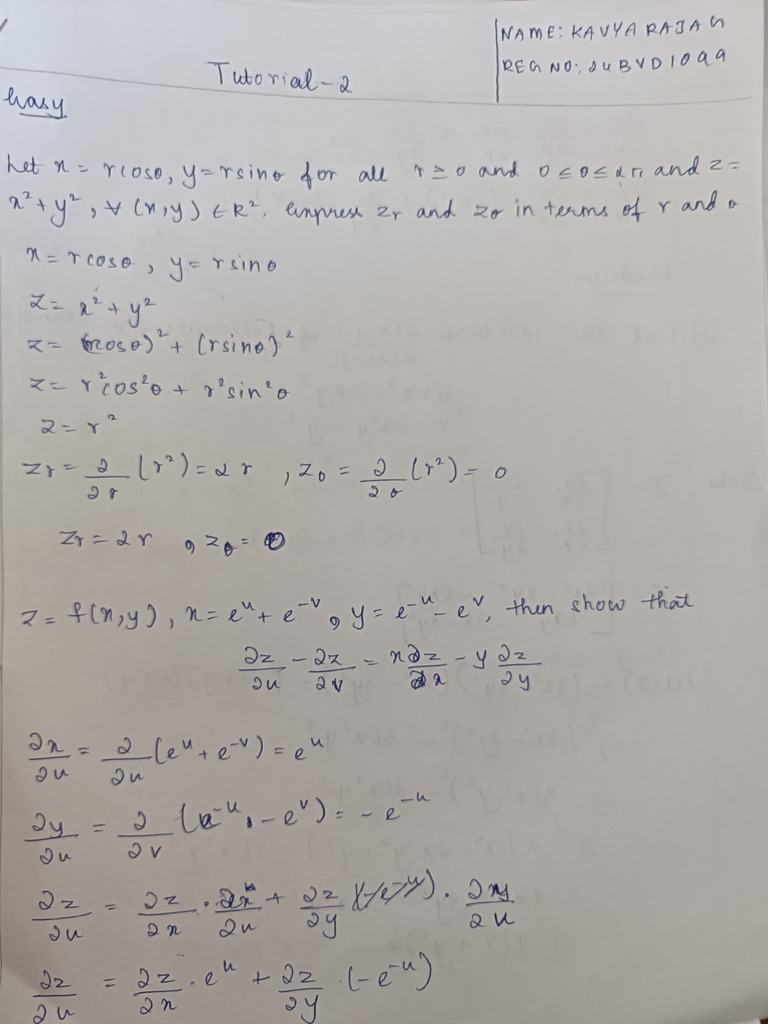 NAME: KAVYA RAJAG
REG NO: 24BVD1099
Tutorial-2
Easy
Let x = rcosθ, y = rsinθ for all r ≥ 0 and 0 ≤ θ ≤ 2π and z =
x² + y², ∀ (x,y) ∈ R². express zr and zθ in terms of r and θ
x = rcosθ, y = rsinθ
z = x² + y²
z = (rcosθ)² + (rsinθ)²
z = r²cos²θ + r²sin²θ
z = r²
zr = ∂/∂r (r²) = 2r, zθ = ∂/∂θ (r²) = 0
zr = 2r, zθ = 0
z = f(x,y), x = e^u + e^-v, y = e^-u - e^v, then show that
∂z/∂u - ∂z/∂v = x ∂z/∂x - y ∂z/∂y
∂x/∂u = ∂/∂u (e^u + e^-v) = e^u
∂y/∂u = ∂/∂v (e^-u - e^v) = -e^-u
∂z/∂u = ∂z/∂x · ∂x/∂u + ∂z/∂y · ∂y/∂u
∂z/∂u = ∂z/∂x · e^u + ∂z/∂y · (-e^-u)